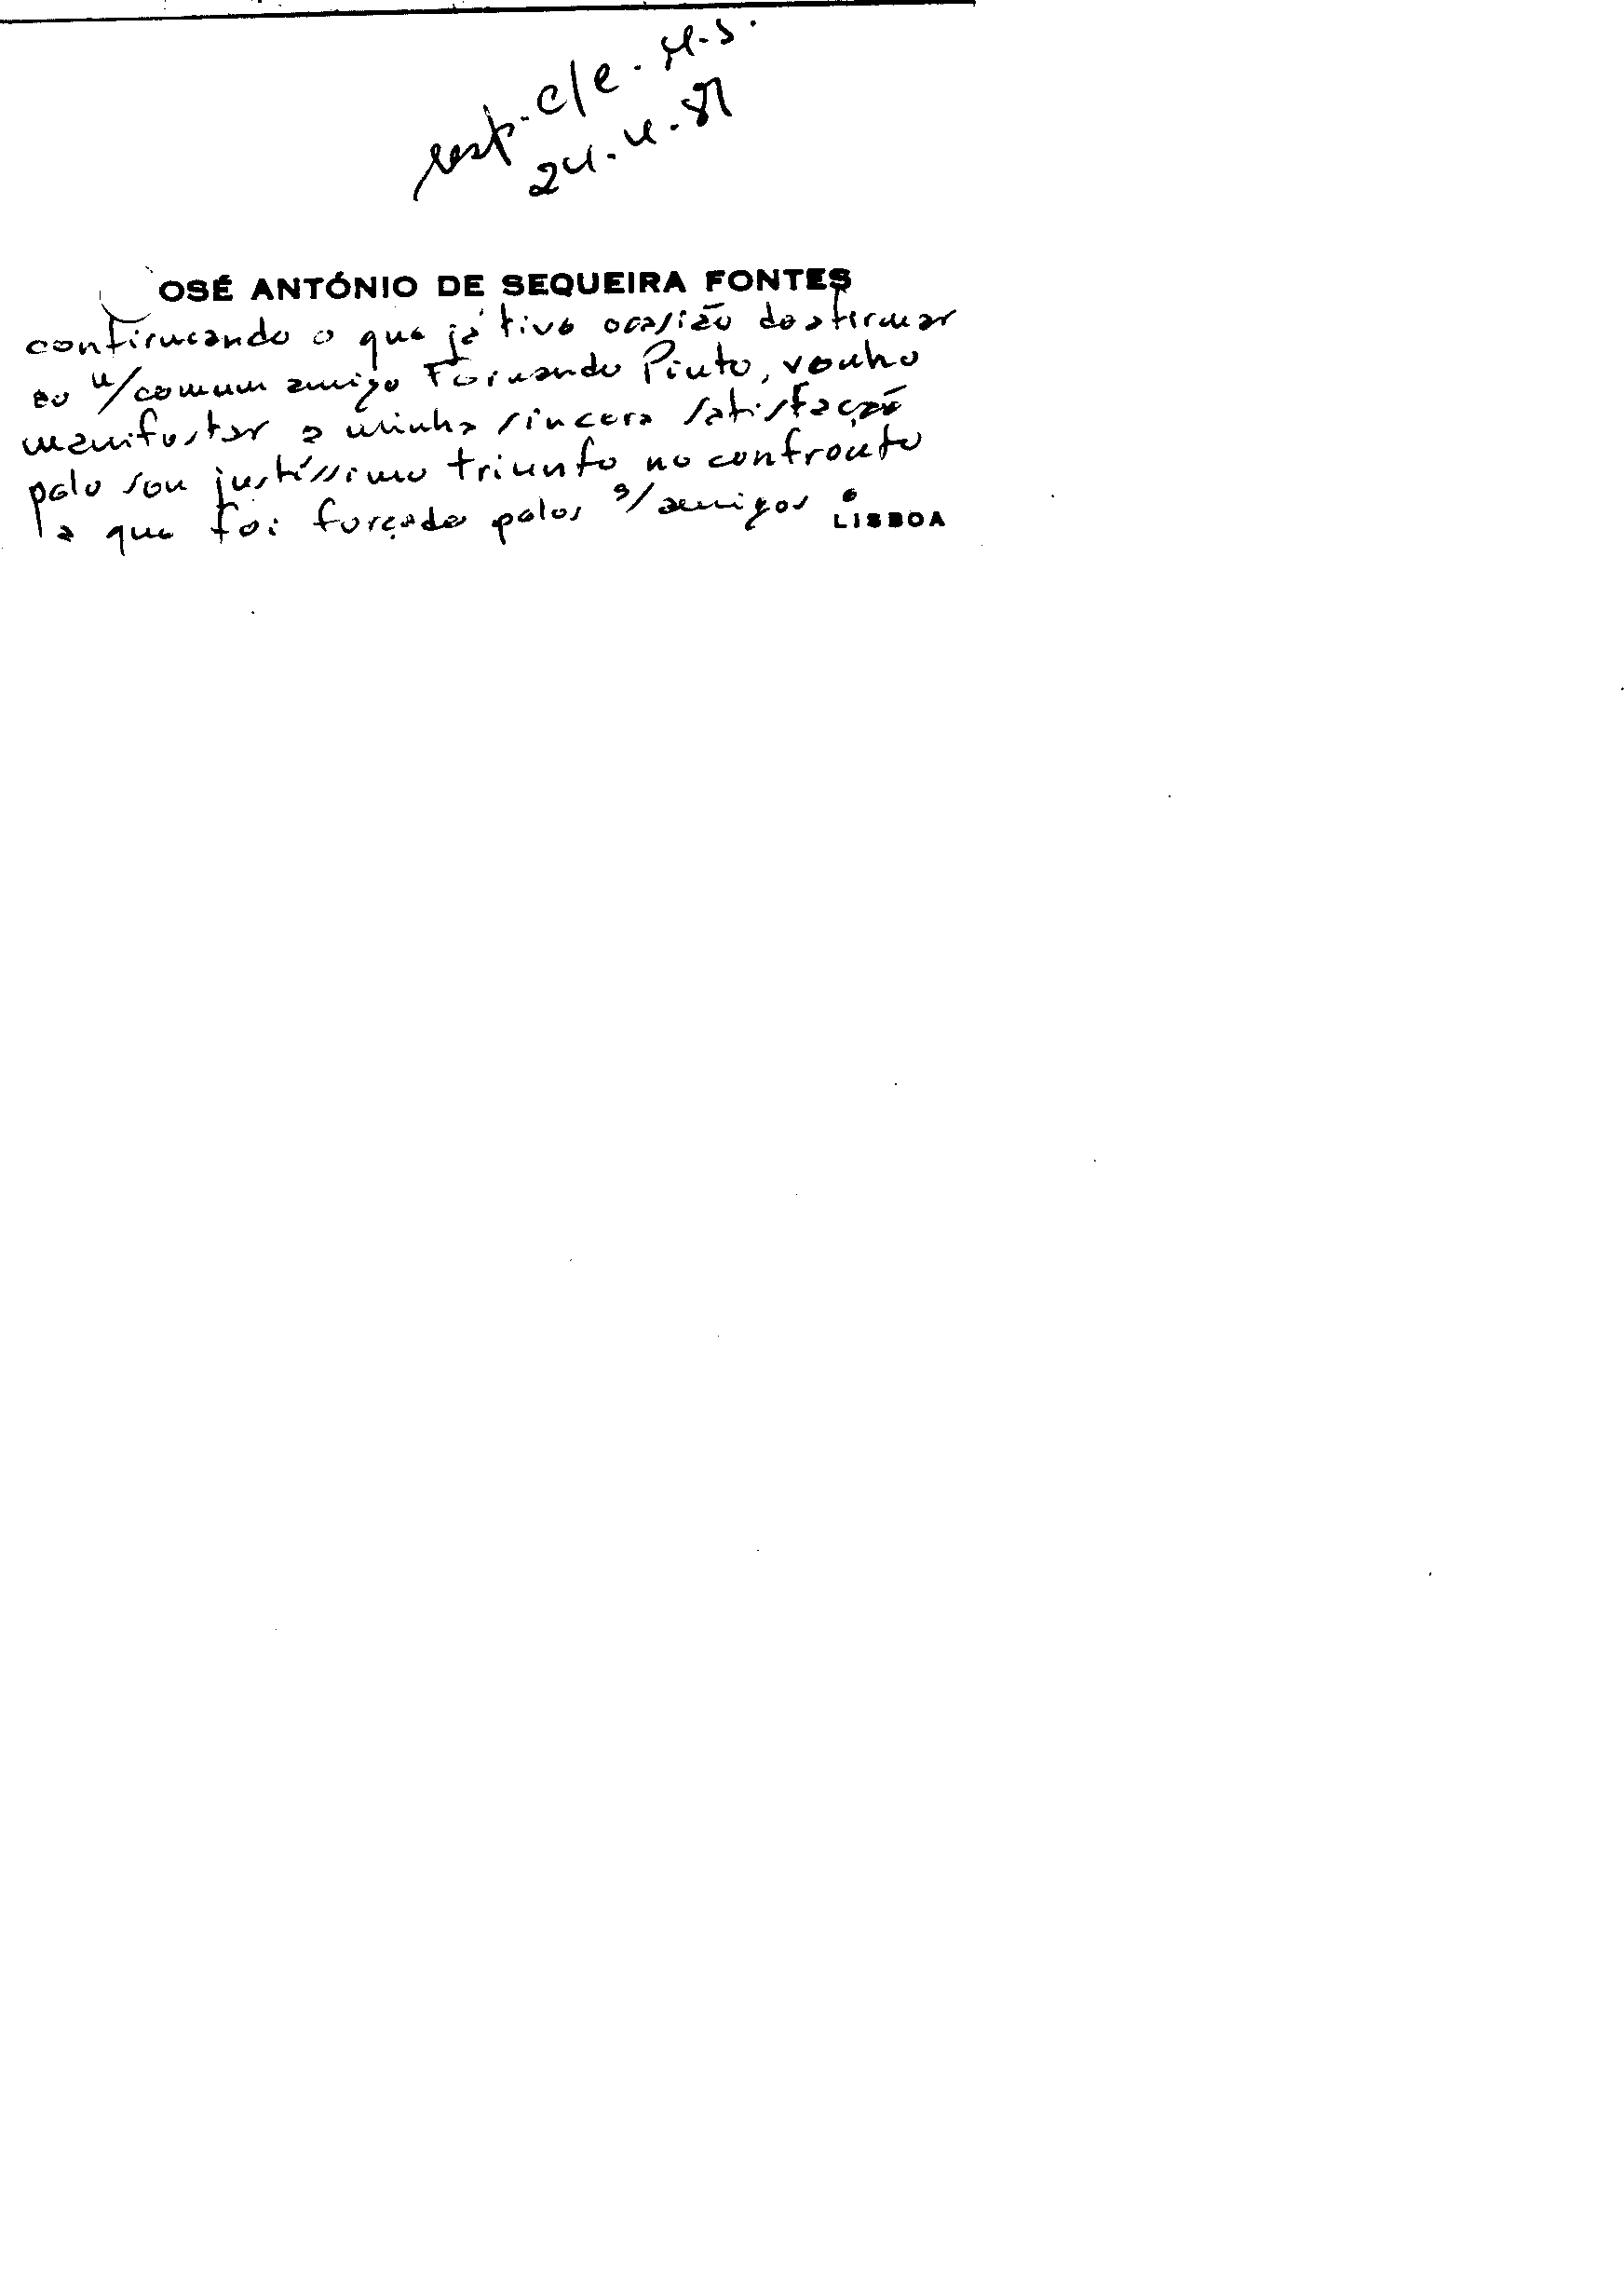 resp. c/c. M.S.
24.4.81
OSÉ ANTÓNIO DE SEQUEIRA FONTES
confirmando o que já tive ocasião de afirmar
ao n/comum amigo Fernando Pinto, venho
manifestar a minha sincera satisfação
pelo seu justíssimo triunfo no confronto
a que foi forçado pelos s/amigos.
LISBOA